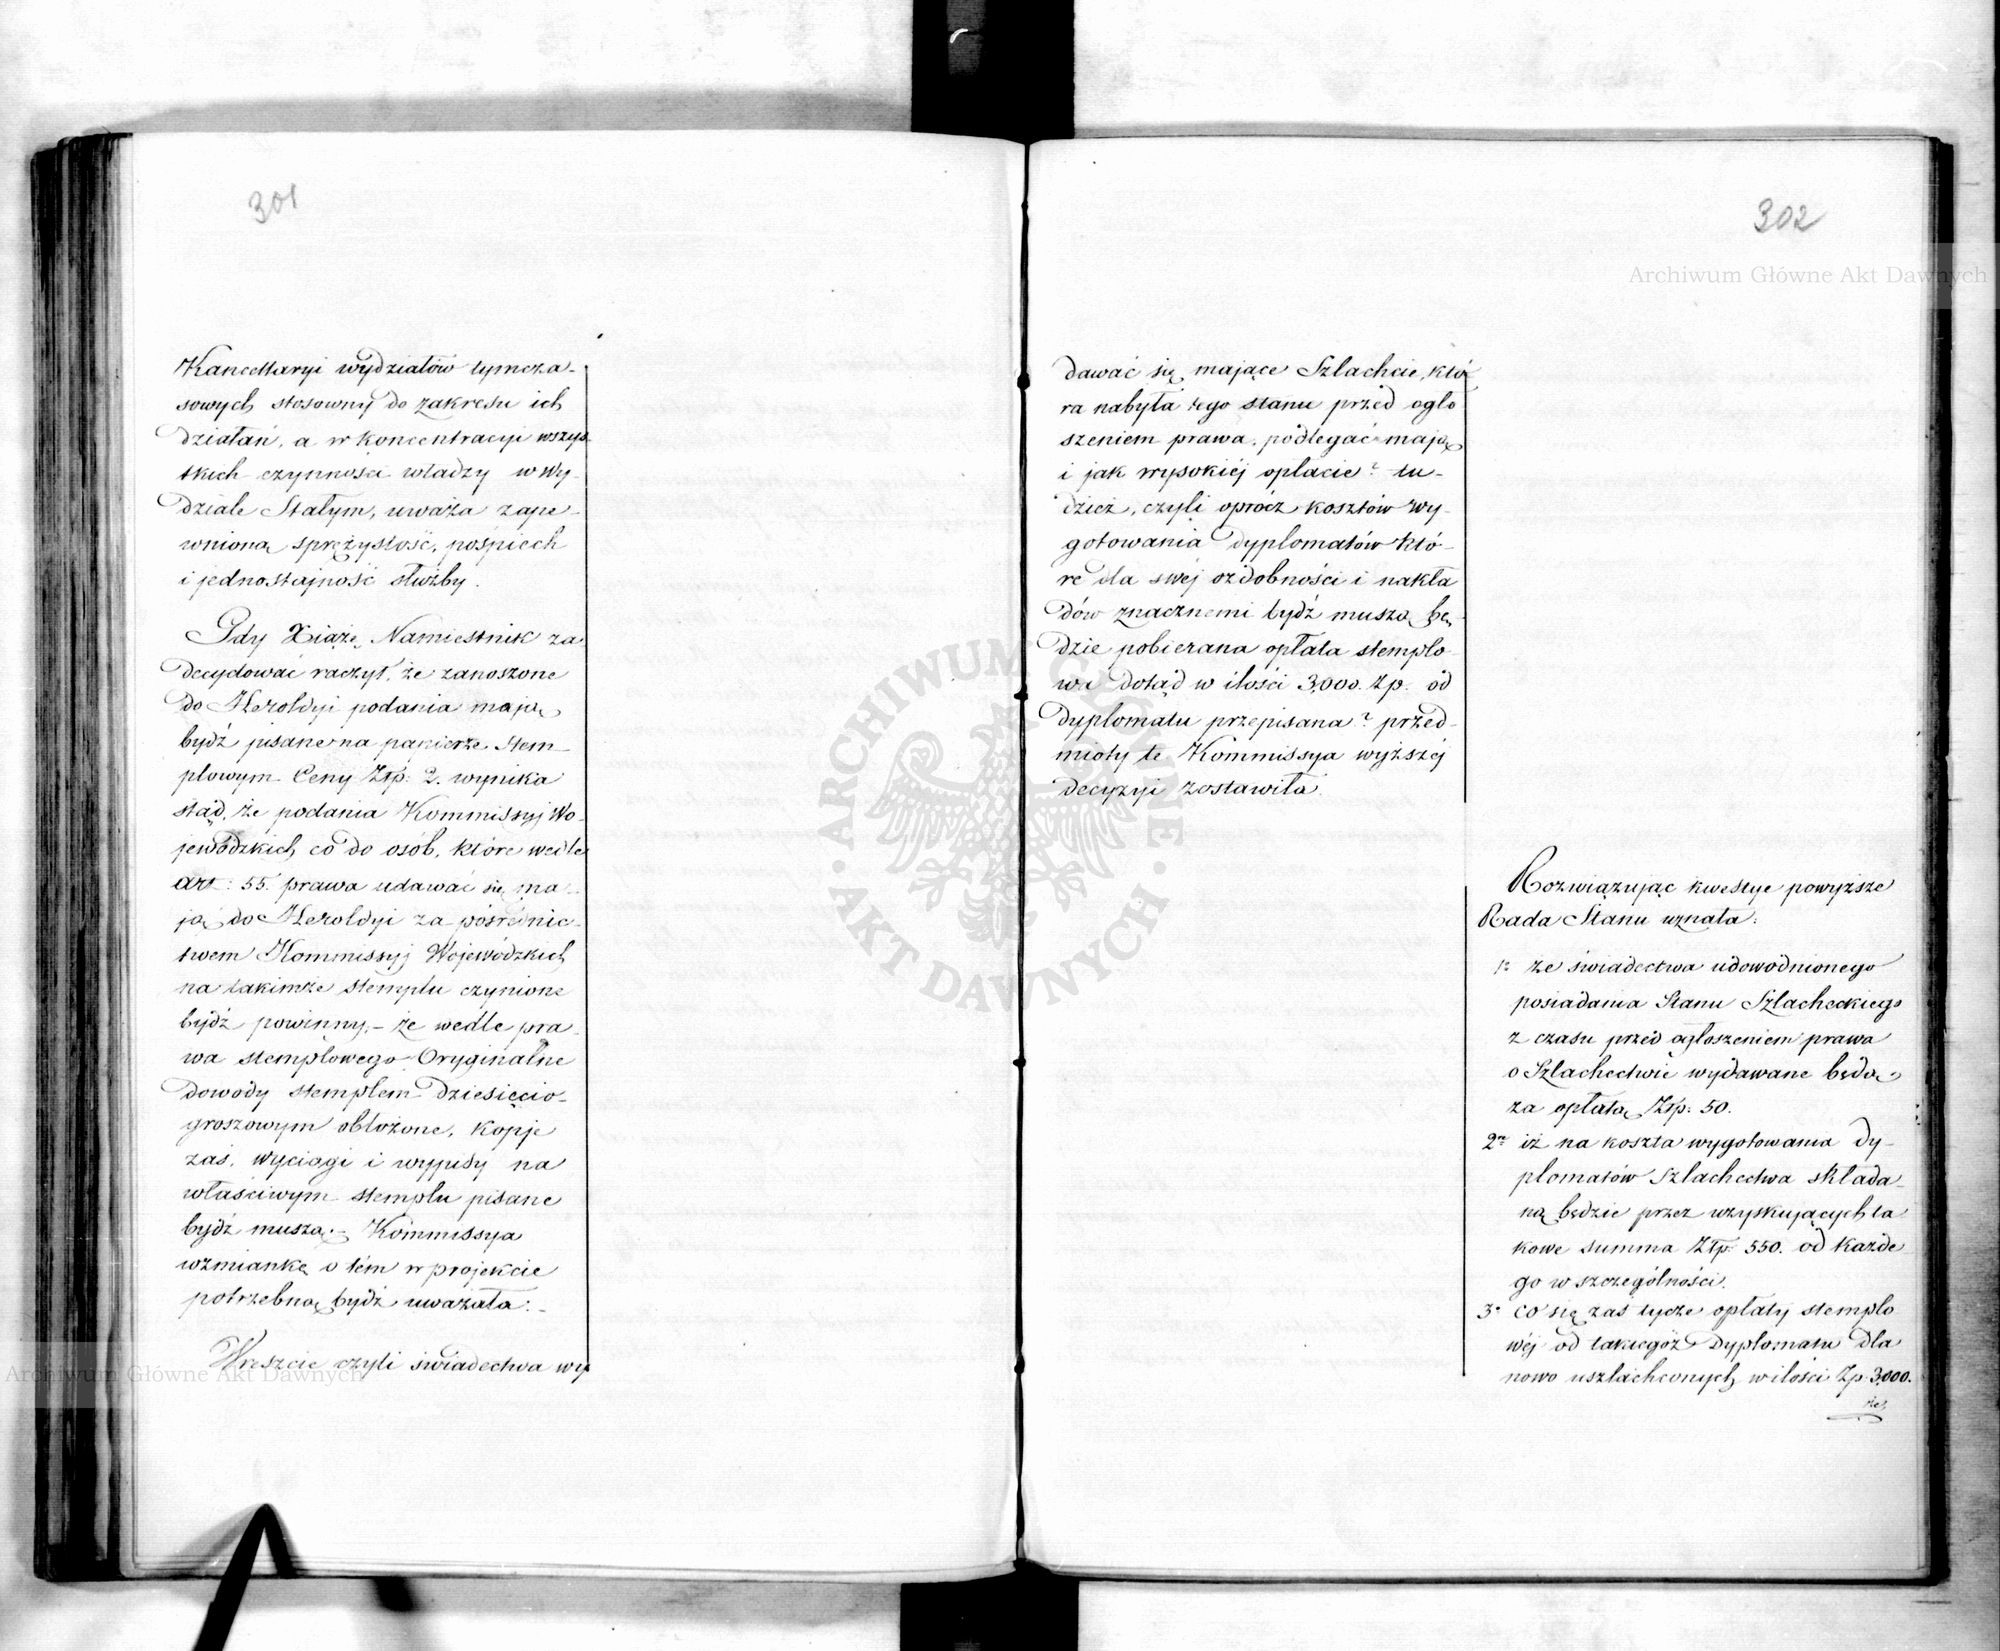 301
Kancellaryi wydziałów tymcza-
sowych stosowny do zakresu ich
działań, a w koncentracyi wszys-
tkich czynności władzy w Wy-
dziale Stałym, uważa zape-
wnioną sprężystość, pośpiech
i jednostajność służby.
Gdy Xiążę Namiestnik za
decydować raczył, że zanoszone
do Heroldyi podania mają
bydź pisane na papierze stem-
plowym Ceny Złp: 2. wynika
stąd, że podania Kommissyj Wo-
jewódzkich co do osób, które wedle
art: 55. prawa udawać się ma-
ją do Heroldyi za pośrednic-
twem Kommissyj Wojewódzkich
na takimże stemplu czynione
bydź powinny, – że wedle pra-
wa stemplowego Oryginalne
dowody stemplem dziesięcio-
groszowym obłożone, kopje
zaś, wyciągi i wypisy na
właściwym stemplu pisane
bydź muszą. – Kommissya
wzmiankę o tém w projekcie
potrzebną bydź uważała: –
Wreszcie czyli świadectwa wy
302
Archiwum Główne Akt Dawnych
dawać się mające Szlachcie, któ
ra nabyła tego stanu przed ogło
szeniem prawa, podlegać mają
i jak wysokiéj opłacie? tu-
dzież, czyli oprócz kosztów wy-
gotowania dyplomatów któ-
re dla swéj ozdobności i nakła
dów znacznemi bydź muszą, bę-
dzie pobierana opłata stemplo-
wa dotąd w ilości 3,000. Zp. od
dyplomatu przepisana? przed-
mioty te Kommissya wyższéj
decyzyi zostawiła.
Rozwiązując kwestye powyższe
Rada Stanu uznała:
1e że świadectwa udowodnionego
posiadania Stanu Szlacheckiego
z czasu przed ogłoszeniem prawa
o Szlachectwie wydawane będą
za opłatą Złp: 50.
2re iż na koszta wygotowania dy-
plomatów Szlachectwa składa-
ną będzie przez uzyskujących ta
kowe summa Złp: 550. od każde
go w szczególności.
3e co się zaś tycze opłaty stemplo
wéj od takiegoż dyplomatu dla
nowo uszlachconych w ilości Zp. 3,000.
ARCHIWUM GŁÓWNE · AKT DAWNYCH ·
Archiwum Główne Akt Dawnych